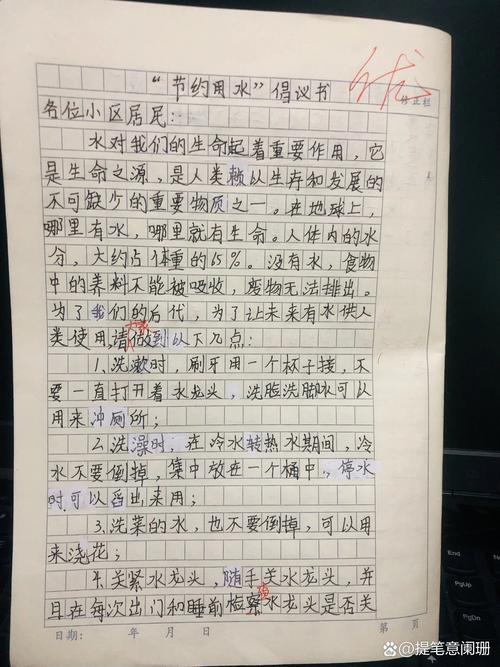 优
修正栏
“节约用水”倡议书
各位小区居民：
水对我们的生命起着重要作用，它
是生命之源，是人类赖以生存和发展的
不可缺少的重要物质之一。在地球上，
哪里有水，哪里就有生命。人体内的水
分，大约占体重的65%。没有水，食物
中的养料不能被吸收，废物无法排出。
为了我们的后代，为了让未来有水供人
类使用，请大家做到以下几点：
1.洗漱时，刷牙用一个杯子接，不
要一直打开着水龙头，洗脸洗脚水可以
用来冲厕所；
2.洗澡时，在冷水转热水期间，冷
水不要倒掉，集中放在一个桶中，停水
时可以舀出来用；
3.洗菜的水，也不要倒掉，可以用
来浇花；
4.关紧水龙头，随手关水龙头，并
且在每次出门和睡前检查水龙头是否关
日期： 年 月 日 第 页
Num
Enter
PgUp
PgDn
@提笔意阑珊